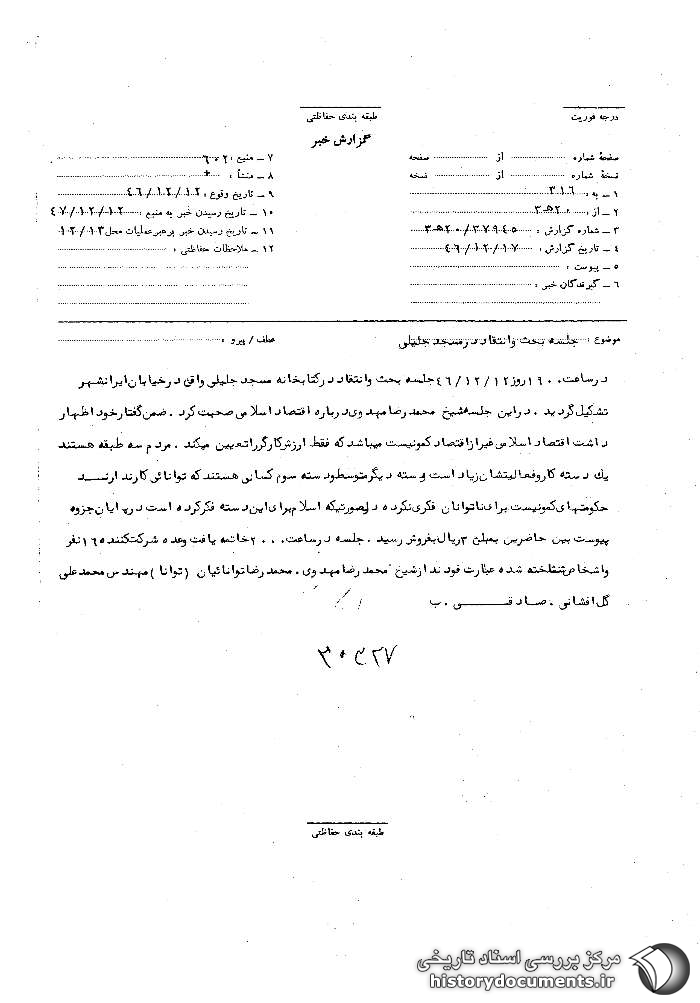 درجه فوریت
طبقه بندی حفاظتی
گزارش خبر
صفحهٔ شماره از صفحه
نسخهٔ شماره از نسخه
۱ ـ به : ۳۱۶
۲ ـ از : ۲۰ه۳
۳ ـ شماره گزارش : ۳۷۹۴۵/۲۰ه۳
۴ ـ تاریخ گزارش : ۴۶/۱۲/۱۷
۵ ـ پیوست :
۶ ـ گیرندگان خبر :
۷ ـ منبع :
۸ ـ منشأ :
۹ ـ تاریخ وقوع : ۴۶/۱۲/۱۲
۱۰ ـ تاریخ رسیدن خبر به منبع : ۴۷/۱۲/۱۲
۱۱ ـ تاریخ رسیدن خبر برهبر عملیات محل ۱۲/۱۳
۱۲ ـ ملاحظات حفاظتی :
موضوع : جلسه بحث وانتقاد درمسجد جلیلی
عطف / پیرو :
درساعت ۱۹۰۰ روز ۴۶/۱۲/۱۲ جلسه بحث وانتقاد درکتابخانه مسجد جلیلی واقع درخیابان ایرانشهر
تشکیل گردید . دراین جلسه شیخ محمد رضا مهدوی درباره اقتصاد اسلامی صحبت کرد . ضمن گفتارخود اظهار
داشت اقتصاد اسلامی غیرازاقتصاد کمونیست میباشد که فقط ارزش کارگرراتعیین میکند . مردم سه طبقه هستند
یك دسته کاروفعالیتشان زیاد است ودسته دیگرمتوسط ودسته سوم کسانی هستند که توانائی کارند ارنــد
حکومتهای کمونیست برای ناتوانان فکری نکرده درصورتیکه اسلام برای این دسته فکرکرده است درپایان جزوه
پیوست بین حاضرین بمبلغ ۳ ریال بفروش رسید . جلسه درساعت ۲۰۰۰ خاتمه یافت وعده شرکت کننده ۱۶ نفر
واشخاص شناخته شده عبارت بودند ازشیخ محمد رضا مهدوی . محمد رضا توانائیان (توانا) مهندس محمد علی
گل افشانی . صادقــی . ب
۳۰۴۲۷
طبقه بندی حفاظتی
مرکز بررسی اسناد تاریخی
historydocuments.ir